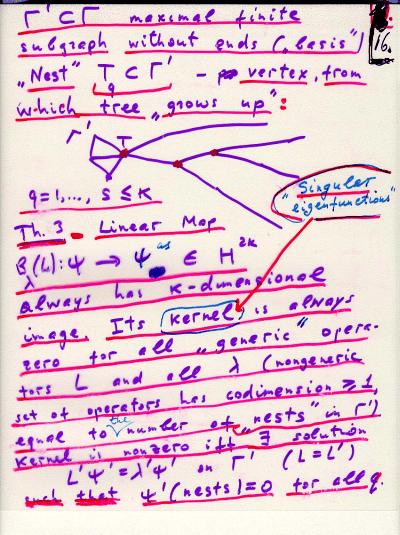 Γ' ⊂ Γ maximal finite
16.
subgraph without ends („basis")
„Nest" T_q ⊂ Γ' - vertex, from
which tree „grows up":
Γ' T
q=1,..., s ≤ k
"Singular
eigenfunctions"
Th. 3. Linear Map
B_λ(L): Ψ → Ψ^as ∈ H^2k
Always has k-dimensional
image. Its kernel is always
zero for all „generic" opera-
tors L and all λ (nongeneric
set of operators has codimension ⩾ 1,
equal to the number of „nests" in Γ')
Kernel is nonzero iff ∃ solution
L'Ψ' = λ'Ψ' on Γ' (L=L')
such that Ψ'(nests)=0 for all q.